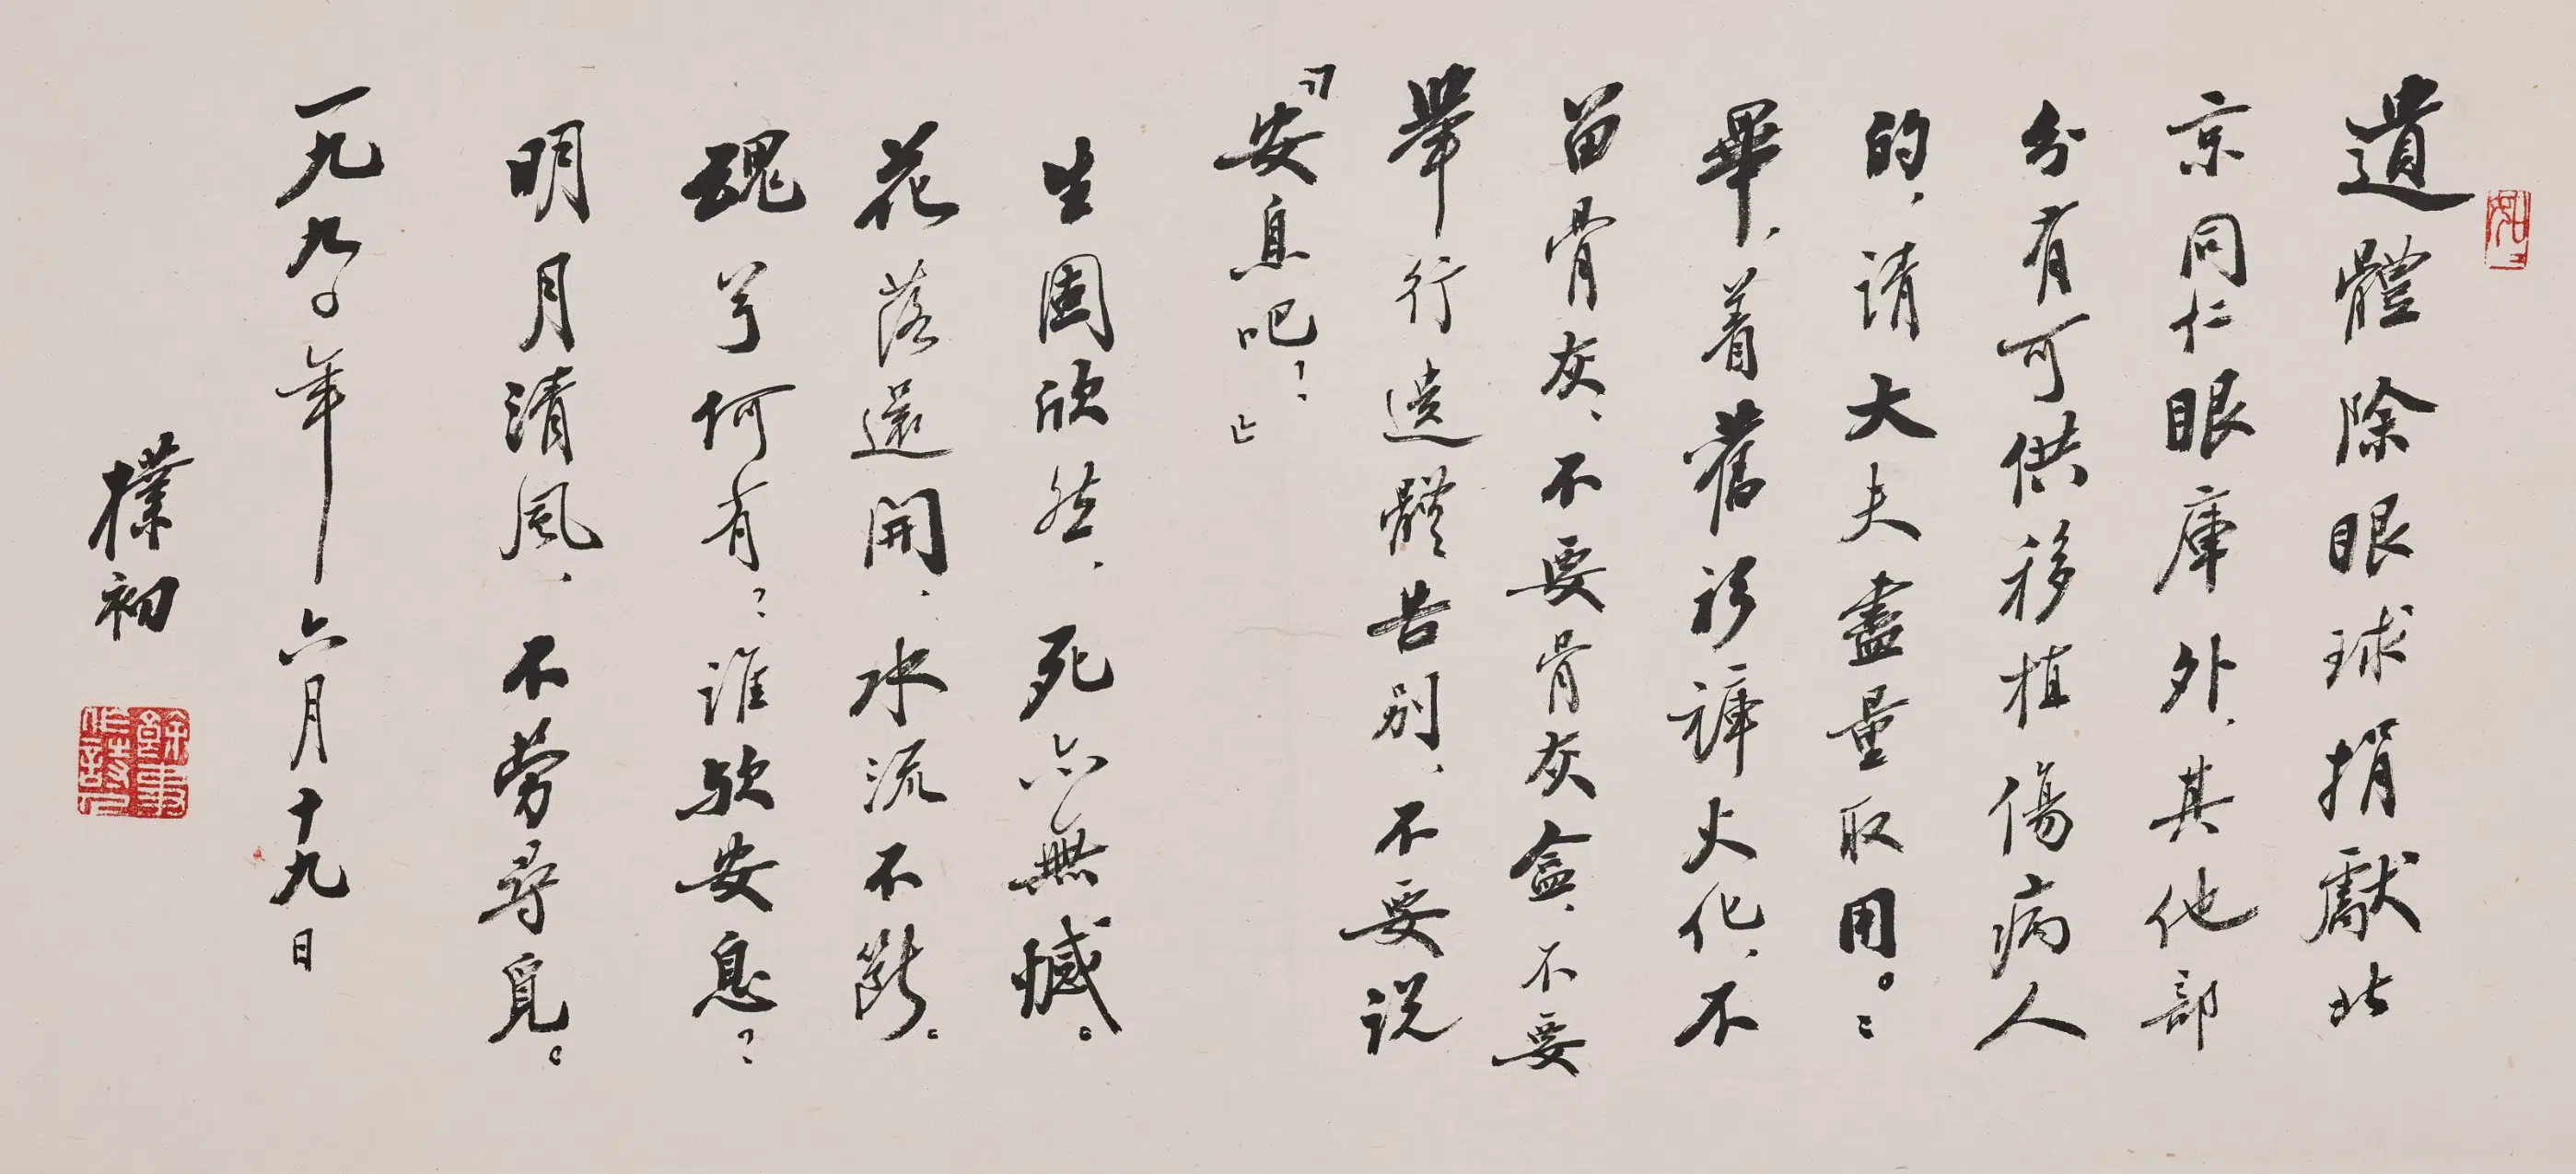 遺體除眼球捐獻北
京同仁眼庫外、其他部
分有可供移植傷病人
的、请大夫盡量取用。〻
畢、着舊衫褲火化、不
留骨灰、不要骨灰盒、不要
舉行遗體告别、不要说
『安息吧!』
生固欣然、死亦無憾。
花落還開、水流不斷。
魂兮何有?誰欤安息?
明月清風、不勞尋覓。
一九九〇年六月十九日
樸初
餘事作詩人